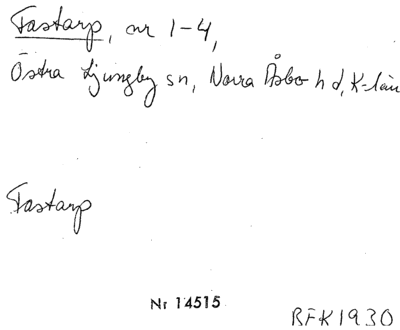 Fastarp, nr 1-4,
Östra Ljungby sn, Norra Åsbo hd, K-län
Fastarp
Nr 14515
BFK1930